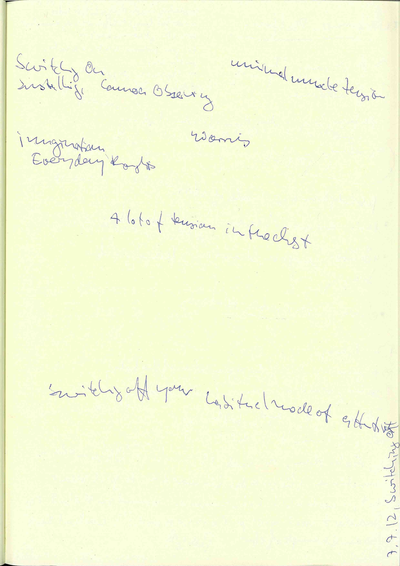 Switching On
minimal muscle tension
Installing, Common Observing
imagination
worries
Everyday
A lot of tension in the chest
switching off your habitual mode of attention
3.9.12, Switching off